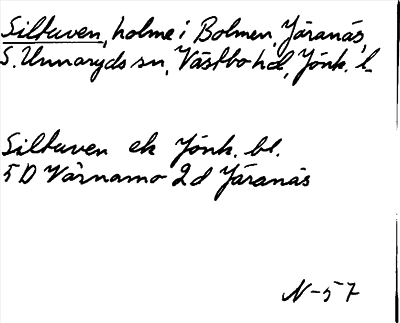 Siltuven, holme i Bolmen, Järanäs,
S. Unnaryds sn, Västbo hd, Jönk. l.
Siltuven ek Jönk. bl.
5D Värnamo 2d Järanäs
N-57